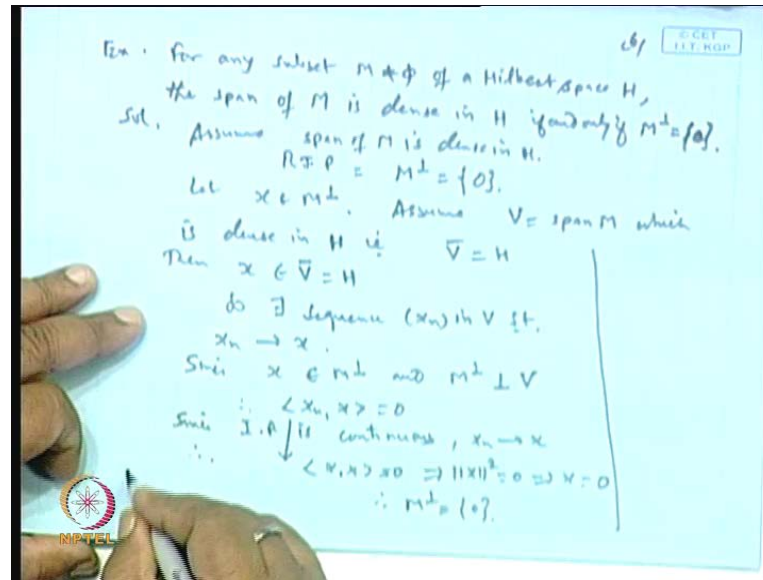 © CET
I.I.T. KGP
Ex. For any subset M ≠ φ of a Hilbert space H,
the span of M is dense in H if and only if M⊥ = {0}.
Sol. Assume span of M is dense in H.
R.T.P = M⊥ = {0}.
Let x ∈ M⊥. Assume V = span M which
is dense in H ie V̄ = H
Then x ∈ V̄ = H
So ∃ sequence (xn) in V st.
xn → x.
Since x ∈ M⊥ and M⊥ ⊥ V
∴ < xn, x > = 0
Since I.P is continuous, xn → x
∴ < x, x > = 0 ⇒ ||x||² = 0 ⇒ x = 0
∴ M⊥ = {0}.
NPTEL